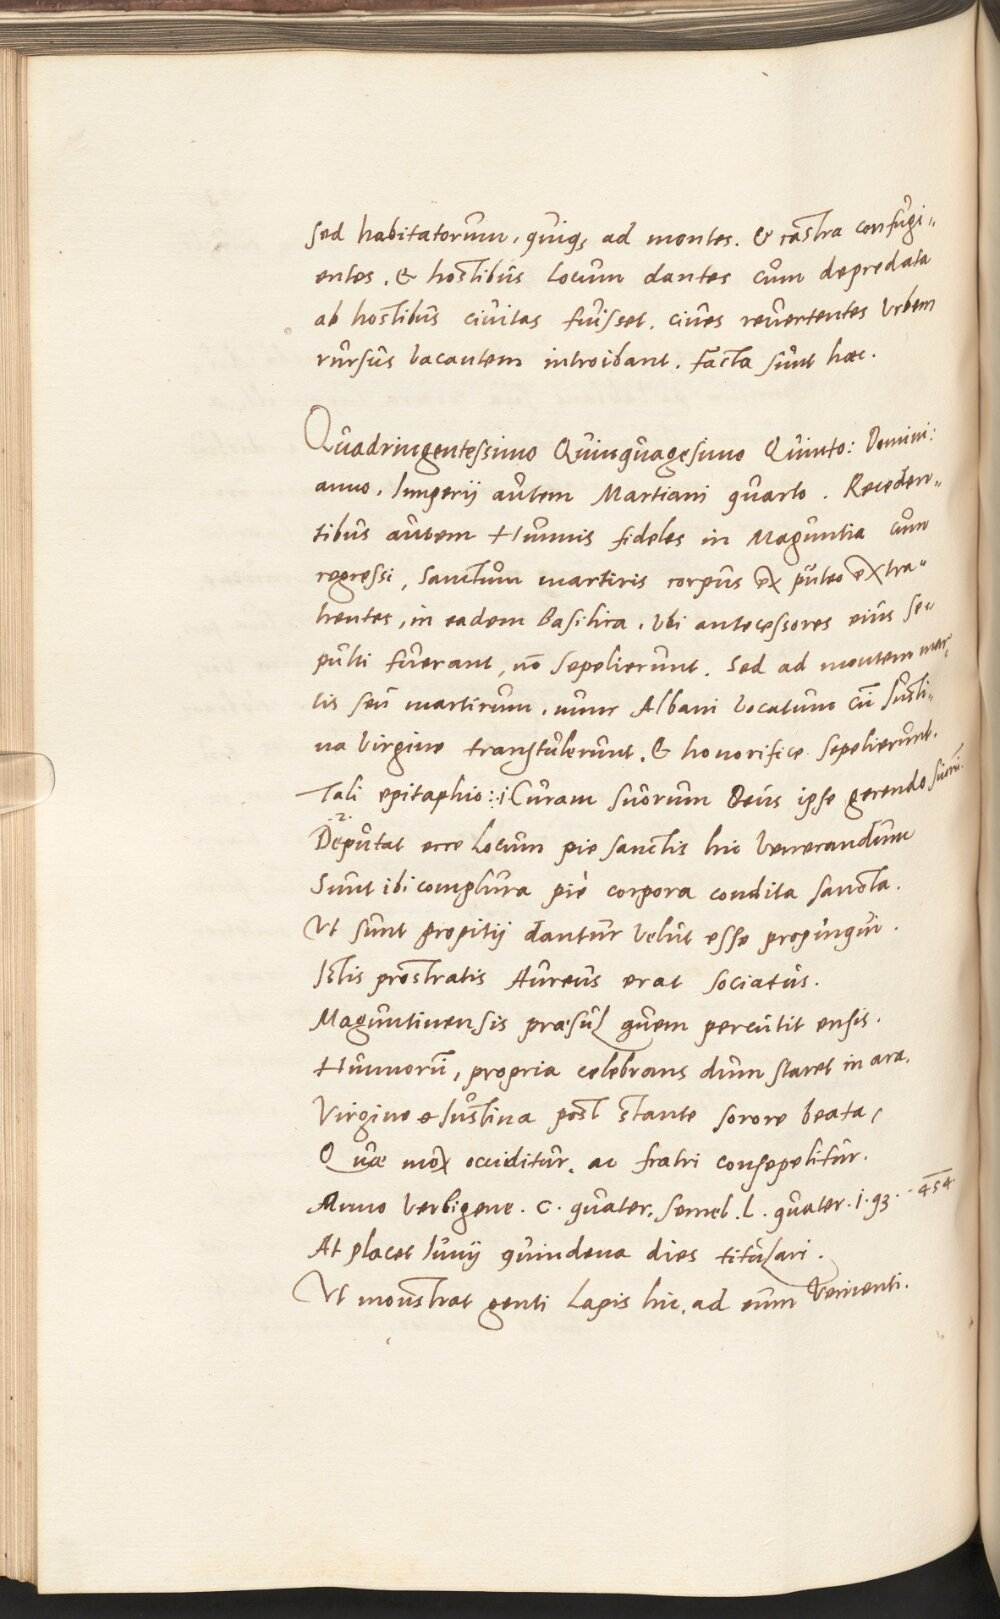 sed habitatorum, quiq, ad montes. & castra confugi„
entes. & hostibus locum dantes cum depredata
ab hostibus ciuitas fuisset. ciues reuertentes Vrbem
rursus vacantem introibant. facta sunt haec.
Quadringentessimo Quinquagesimo Quinto: Domini:
anno. Imperij autem Martiani quarto. Receden„
tibus autem Hunnis fideles in Maguntia cum
regressi, sanctum martiris corpus ex puteo extra„
hentes, in eadem Basilica. Vbi antecessores eius se„
pulti fuerant, nō sepelierunt. Sed ad montem mar„
tis seu martirum, nunc Albani vocatum cū Iusti„
na Virgine transtulerunt. & honorifice sepelierunt.
Tali epitaphio: Curam suorum Deus ipse gerendo suorū.
Deputat ecce locum pie sanctis hic Venerandum
Sunt ibi complura piè corpora condita sancta.
Vt sunt propitij dantur velut esse propinqui.
Istis prostratis Aureus erat sociatus.
Maguntinensis præsul quem percutit ensis.
Hunnorū, propria celebrans dum staret in ara.
Virgine & Iustina post stante sorore beata,
Quæ mox occiditur. ac fratri consepelitur.
Anno verbigene. C. quater. semel. L. quater. i. 93. - 454
At placet Iunij quindena dies titulari.
Vt monstrat genti Lapis hic, ad eum Venienti.